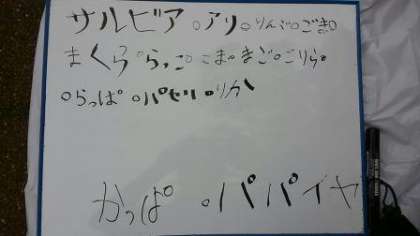 サルビア。アリ。りんご。ごま。
まくら。らっこ。こま。まご。ごりら。
。らっぱ。パセリ。りか
かっぱ。パパイヤ